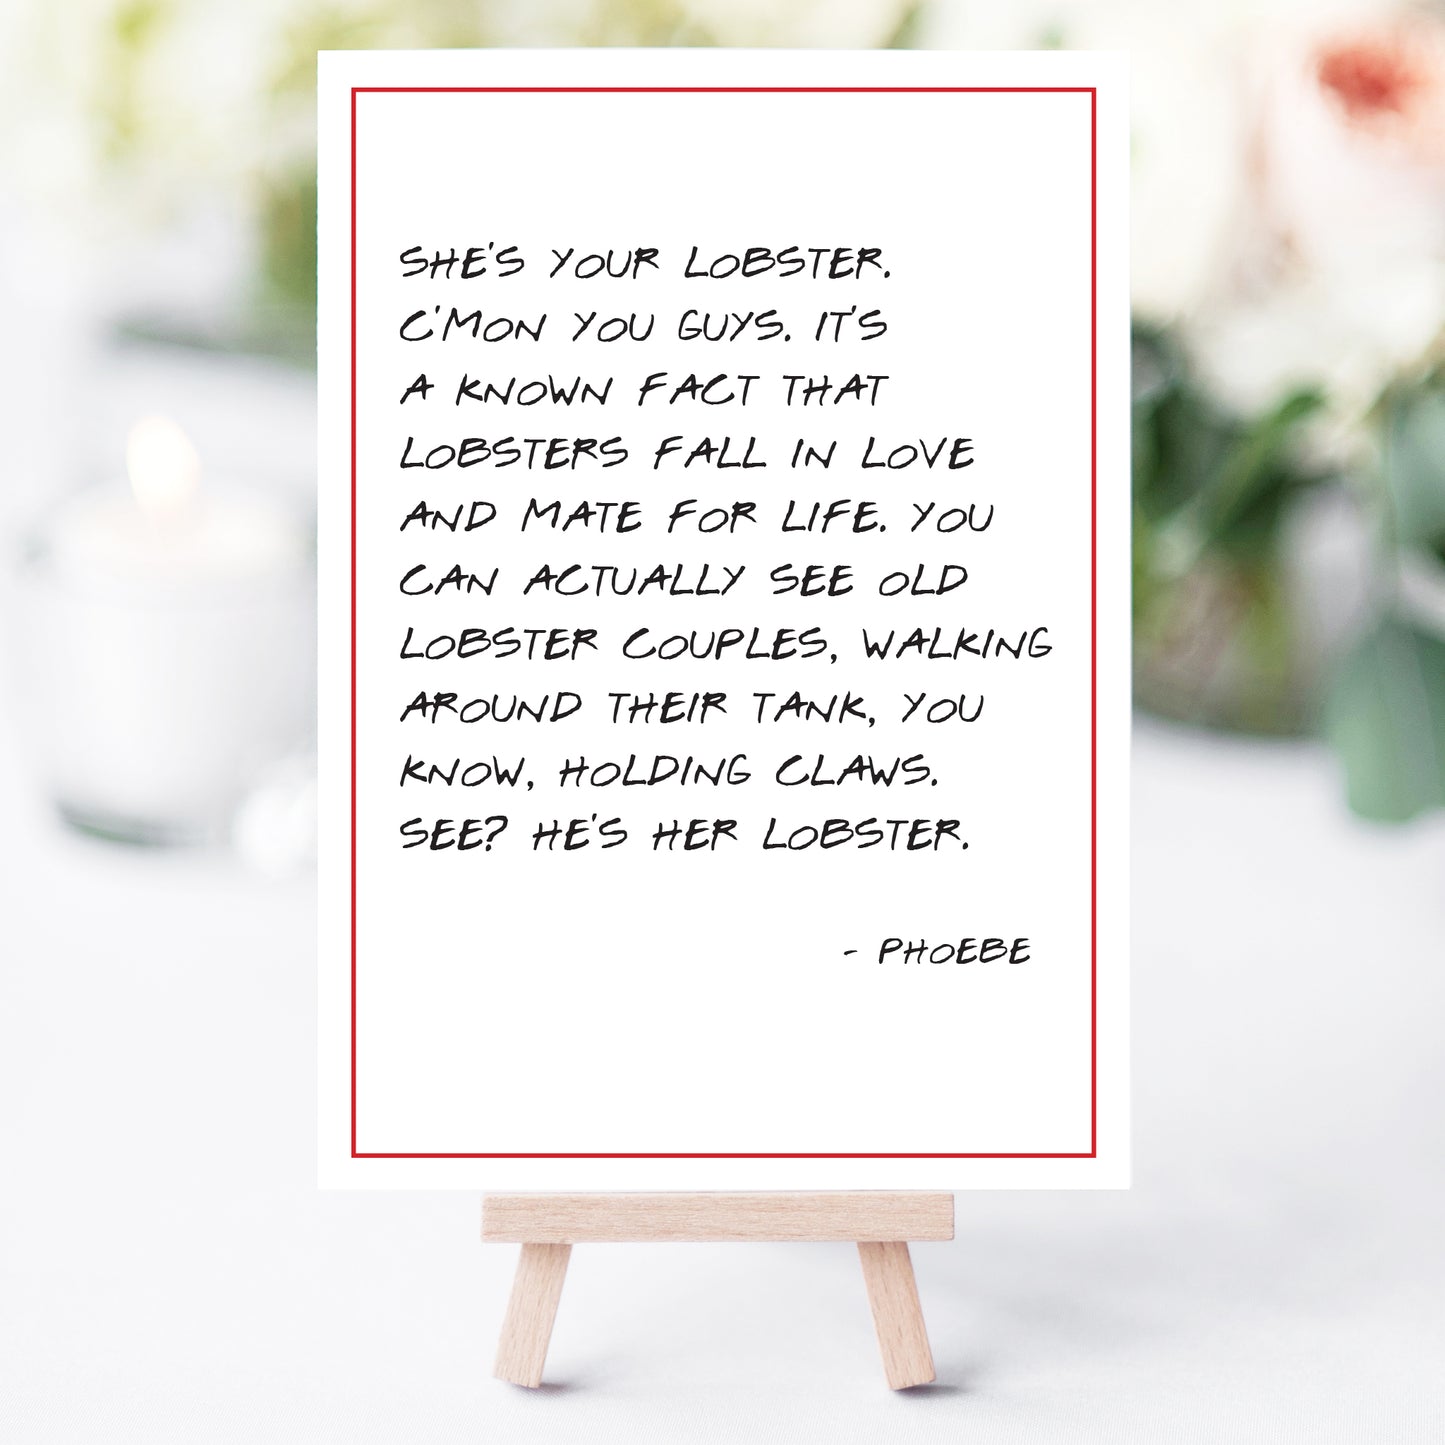 SHE'S YOUR LOBSTER.
C'MON YOU GUYS. IT'S
A KNOWN FACT THAT
LOBSTERS FALL IN LOVE
AND MATE FOR LIFE. YOU
CAN ACTUALLY SEE OLD
LOBSTER COUPLES, WALKING
AROUND THEIR TANK, YOU
KNOW, HOLDING CLAWS.
SEE? HE'S HER LOBSTER.
- PHOEBE